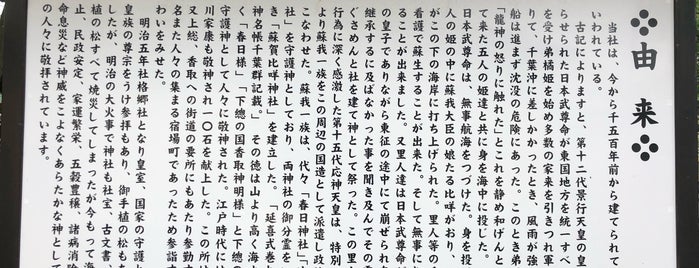 由来
当社は、今から千五百年前から建てられて
いわれている。
古記によりますと、第十二代景行天皇の皇
らせられた日本武尊命が東国地方を統一すべ
を受け弟橘姫を始め多数の家来を引きつれ軍
りて、千葉沖に差しかかったとき、風雨が強
船は進まず沈没の危険にあった。このとき弟
「龍神の怒りに触れた」とこれを静め和げんと
て来た五人の姫達と共に身を海中に投じた。
日本武尊命は、無事航海をつづけた。身を投
人の姫の中に蘇我大臣の娘たる比咩がおり、
がこの下の海岸に打ち上げられた。里人等の
看護で蘇生することが出来た。そして無事に
ることが出来ました。又里人達は日本武尊命が
の皇子でありながら東征の途中にて崩ぜられ
継承するに及ばなかった事を聞き及んでその
ぐさめんと社を建て神として祭った。この里
行為に深く感激した第十五代応神天皇は、特別
より蘇我一族をこの周辺の国造として派遣し政
こなわせた。蘇我一族は、代々「春日神社」
社」を守護神としており、両神社の御分霊を
き「蘇賀比咩神社」を建立した。「延喜式巻
神名帳千葉群記載。」その徳は山より高く海よ
く「春日様」「下総の国香取神明様」と下総の
守護神として人々に敬神された。江戸時代に
川家康も敬神され一〇石を献上した。この所
又上総、香取への街道の要所にもあたり参勤
名また人々の集まる宿場町であったため参詣
わいをみせた。
明治五年社格郷社となり皇室、国家の守護
皇族の尊宗をうけ参拝もあり、御手植の松も
したが、明治の大火事で神社も社宝、古文書、
植の松すべて焼災してしまったが今もって海
止、民政安定、家運繁栄、五穀豊穣、諸病消除
命息災など神威をこよなくあらたかな神として
の人々に敬拝されています。